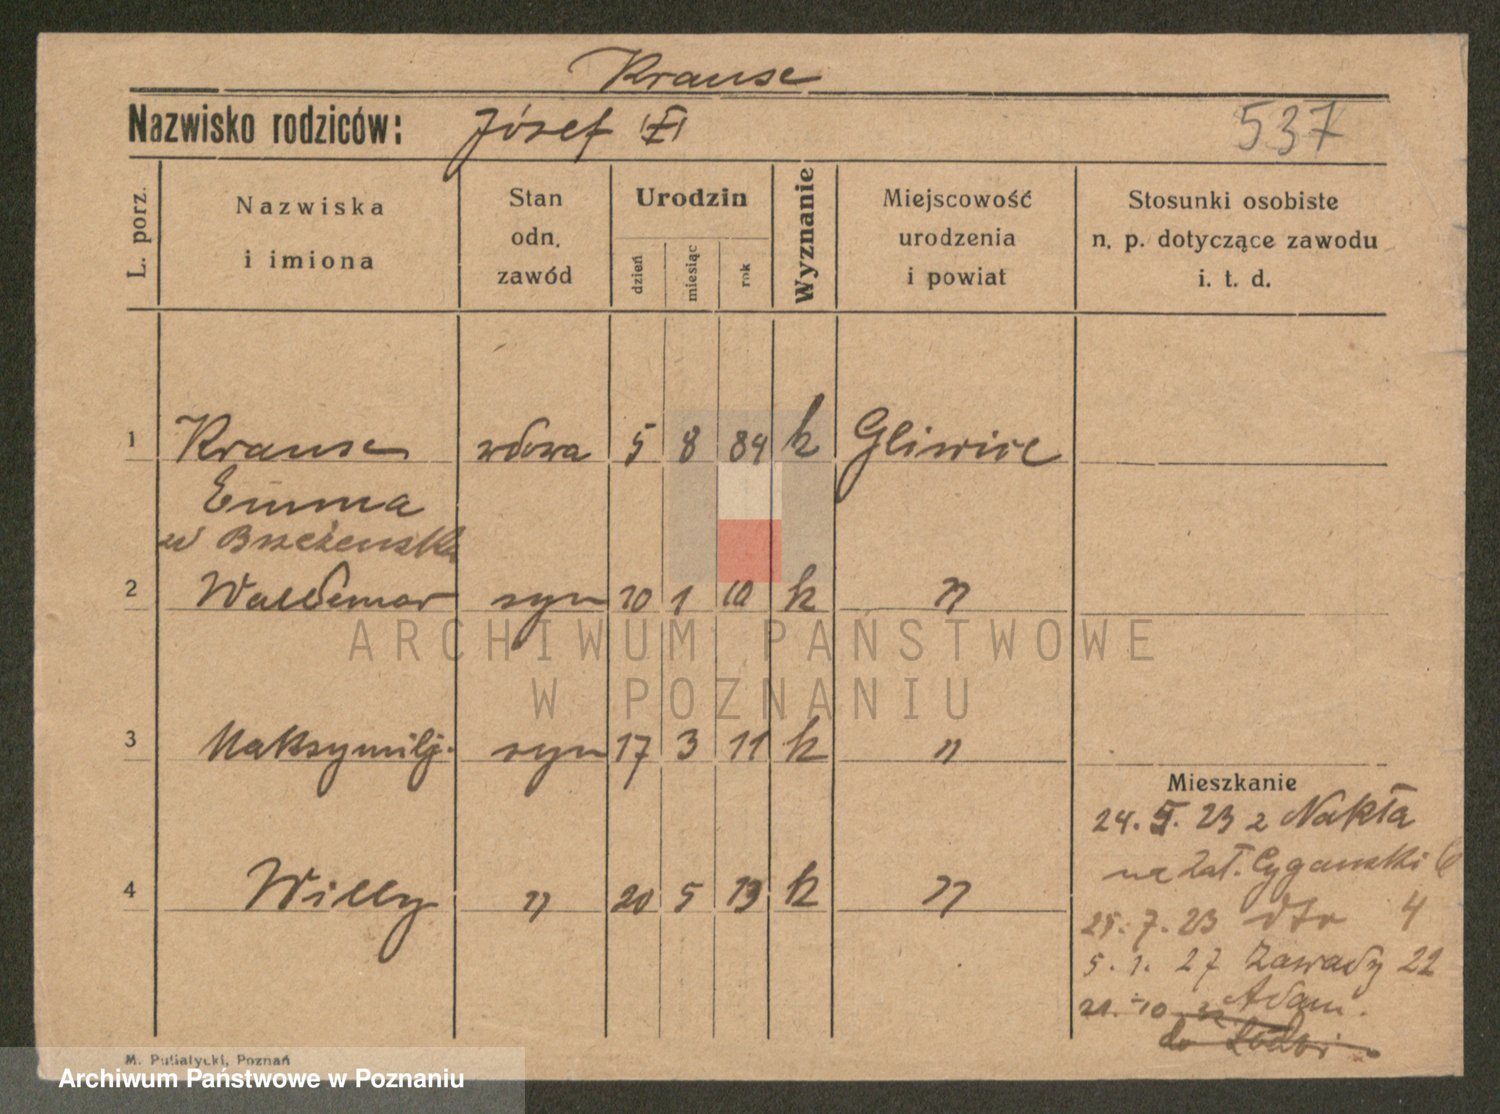 Krause
Nazwisko rodziców: Józef 537
L. porz.
Nazwiska
i imiona
Stan
odn.
zawód
Urodzin
dzień
miesiąc
rok
Wyznanie
Miejscowość
urodzenia
i powiat
Stosunki osobiste
n. p. dotyczące zawodu
i. t. d.
1 Krause wdowa 5 8 84 k Gliwice
Emma
2 Waldemar syn 10 1 10 k "
ARCHIWUM PAŃSTWOWE
W POZNANIU
3 Maksymilj. syn 17 3 11 k "
Mieszkanie
24. 5. 23 z Nakła
na Zał. Cyganski 6
4 Willy " 20 5 13 k "
25. 7. 23 dto 4
5. 1. 27 Zawady 22
21. 10 Adam.
do Łodzi
M. Putiatycki, Poznań
Archiwum Państwowe w Poznaniu